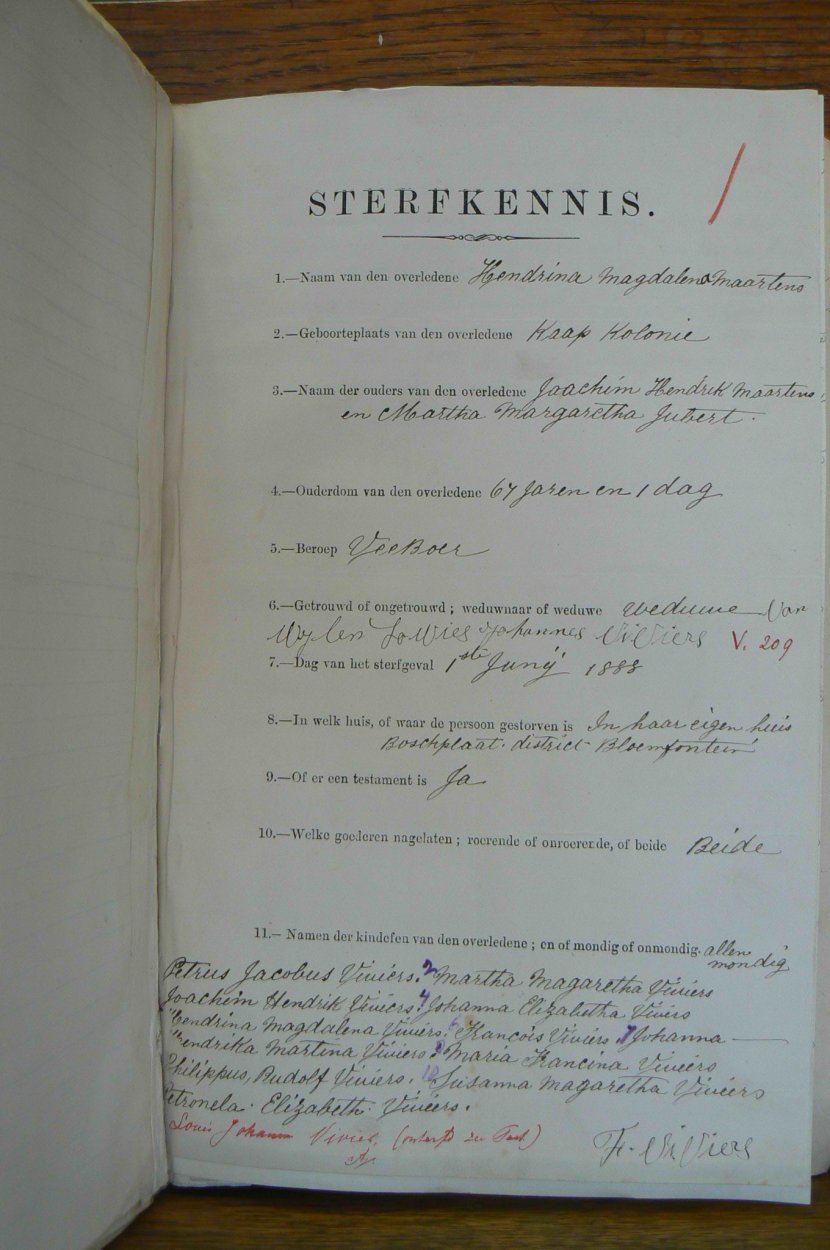 STERFKENNIS.
1.—Naam van den overledene Hendrina Magdalena Maartens
2.—Geboorteplaats van den overledene Kaap Kolonie
3.—Naam der ouders van den overledene Joachim Hendrik Maartens
en Martha Margaretha Jubert.
4.—Ouderdom van den overledene 67 Jaren en 1 dag
5.—Beroep VeeBoer
6.—Getrouwd of ongetrouwd; weduwnaar of weduwe weduwe Van
Wylen Lowies Johannes ViViers V. 209
7.—Dag van het sterfgeval 1ste Junÿ 1888
8.—In welk huis, of waar de persoon gestorven is In haar eigen huis
Boschplaat. district Bloemfontein
9.—Of er een testament is Ja
10.—Welke goederen nagelaten; roerende of onroerende, of beide Beide
11.—Namen der kinderen van den overledene; en of mondig of onmondig. allen
mondig
Petrus Jacobus Viviers. 2 Martha Magaretha Viviers
Joachim Hendrik Viviers. 4 Johanna Elizabetha Viviers
Hendrina Magdalena Viviers. 6 Francois Viviers. 7 Johanna
Hendrika Martina Viviers 8 Maria Francina Viviers
Philippus, Rudolf Viviers. 10 Susanna Magaretha Viviers
Petronela. Elizabeth. Viviers.
Louis Johannes Vivier
F. ViViers